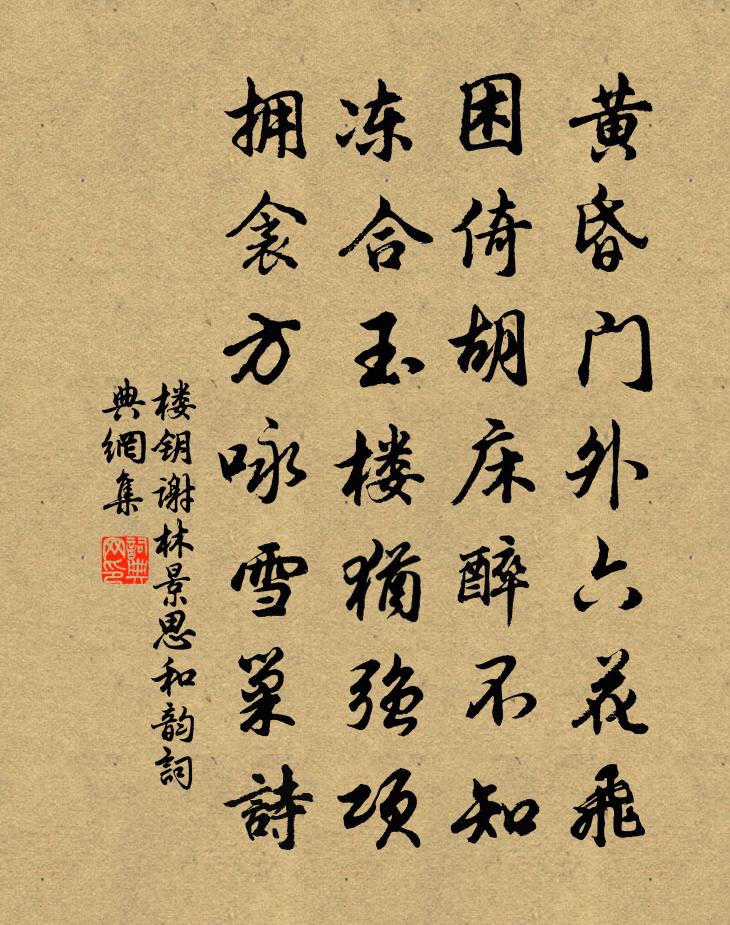 黄昏门外六花飞
困倚胡床醉不知
冻合玉楼犹强项
拥衾方咏雪巢詩
楼钥谢林景思和韵詞
典網集
詞典
网印